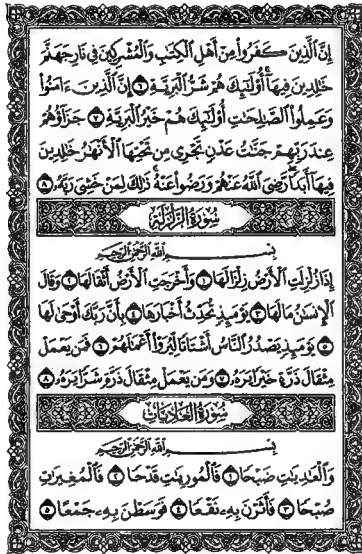 إِنَّ الَّذِينَ كَفَرُوا مِنْ أَهْلِ الْكِتَابِ وَالْمُشْرِكِينَ فِي نَارِ جَهَنَّمَ
خَالِدِينَ فِيهَا أُولَٰئِكَ هُمْ شَرُّ الْبَرِيَّةِ ٦ إِنَّ الَّذِينَ ءَامَنُوا
وَعَمِلُوا الصَّالِحَاتِ أُولَٰئِكَ هُمْ خَيْرُ الْبَرِيَّةِ ٧ جَزَاؤُهُمْ
عِندَ رَبِّهِمْ جَنَّاتُ عَدْنٍ تَجْرِي مِن تَحْتِهَا الْأَنْهَارُ خَالِدِينَ
فِيهَا أَبَدًا رَّضِيَ اللَّهُ عَنْهُمْ وَرَضُوا عَنْهُ ذَٰلِكَ لِمَنْ خَشِيَ رَبَّهُ ٨
سُورَةُ الزَّلْزَلَةِ
بِسْمِ اللَّهِ الرَّحْمَٰنِ الرَّحِيمِ
إِذَا زُلْزِلَتِ الْأَرْضُ زِلْزَالَهَا ١ وَأَخْرَجَتِ الْأَرْضُ أَثْقَالَهَا ٢ وَقَالَ
الْإِنسَانُ مَا لَهَا ٣ يَوْمَئِذٍ تُحَدِّثُ أَخْبَارَهَا ٤ بِأَنَّ رَبَّكَ أَوْحَىٰ لَهَا
٥ يَوْمَئِذٍ يَصْدُرُ النَّاسُ أَشْتَاتًا لِّيُرَوْا أَعْمَالَهُمْ ٦ فَمَن يَعْمَلْ
مِثْقَالَ ذَرَّةٍ خَيْرًا يَرَهُ ٧ وَمَن يَعْمَلْ مِثْقَالَ ذَرَّةٍ شَرًّا يَرَهُ ٨
سُورَةُ الْعَادِيَاتِ
بِسْمِ اللَّهِ الرَّحْمَٰنِ الرَّحِيمِ
وَالْعَادِيَاتِ ضَبْحًا ١ فَالْمُورِيَاتِ قَدْحًا ٢ فَالْمُغِيرَاتِ
صُبْحًا ٣ فَأَثَرْنَ بِهِ نَقْعًا ٤ فَوَسَطْنَ بِهِ جَمْعًا ٥